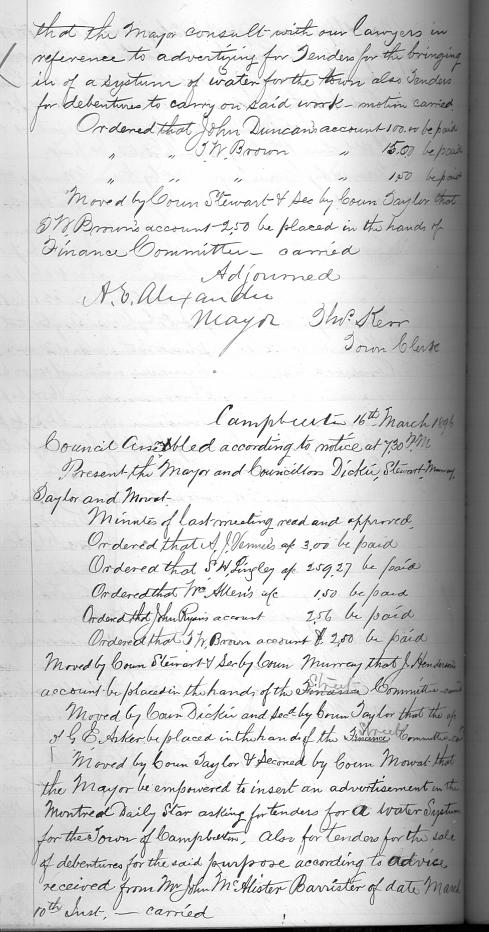 that the Mayor consult with our lawyers in
reference to advertizing for Tenders for the bringing
in of a system of water for the town also Tenders
for debentures to carry on said work - motion carried
Ordered that John Duncan's account 100.00 be paid
" " T.W. Brown " 15.00 be paid
" " " " 1.50 be paid
Moved by Coun Stewart & Sec by Coun Taylor that
T W Brown's account 2.50 be placed in the hands of
Finance Committee - carried
Adjourned
A. E. Alexander
Mayor Thos. Kerr
Town Clerk
Campbellton 16th March 1896
Council Assembled according to notice at 7.30 P.M.
Present the Mayor and Councillors Dickie, Stewart, Murray,
Taylor and Mowat.
Minutes of last meeting read and approved.
Ordered that A. J. Venner's a/c 3.00 be paid
Ordered that S H Lingley a/c 259.27 be paid
Ordered that Wm Allen's a/c 1.50 be paid
Ordered that John Ryan's account 2.56 be paid
Ordered that T W. Brown account $ 2.50 be paid
Moved by Coun Stewart & Sec by Coun Murray that J. Henderson's
account be placed in the hands of the Finance Street Committee - carrd
Moved by Coun Dickie and Secd by Coun Taylor that the a/c
of G. E. Asker be placed in the hands of the Finance Street Committee - card
Moved by Coun Taylor & Seconed by Coun Mowat that
the Mayor be empowered to insert an advertisement in the
Montreal Daily Star asking for tenders for a water System
for the Town of Campbellton, Also for tenders for the sale
of debentures for the said purpose according to advice
received from Mr John McAlister Barrister of date March
10th Inst. - carried